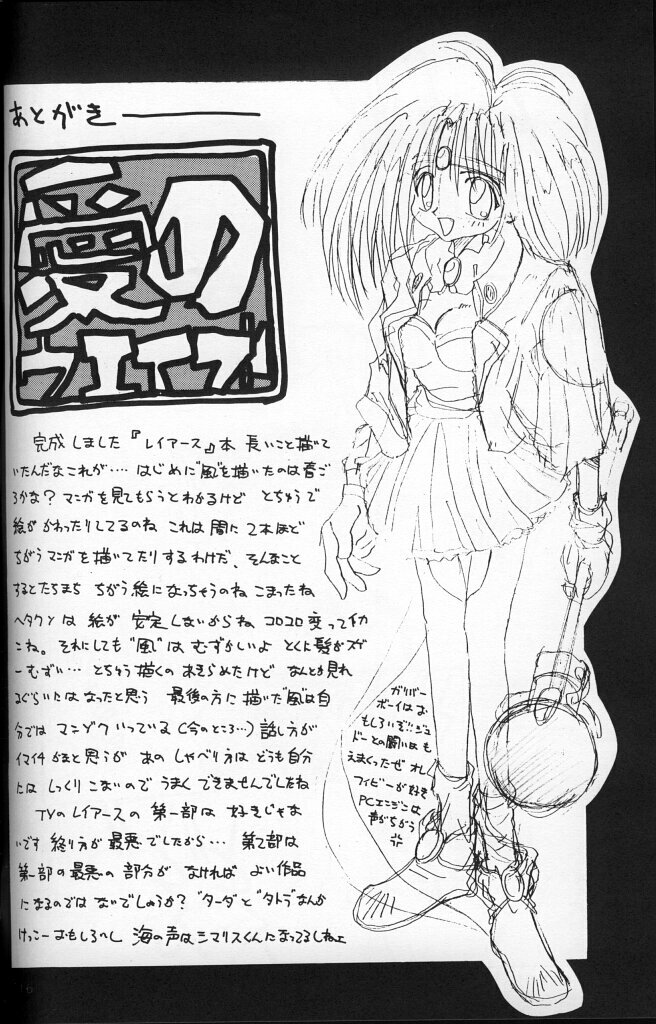 あとがき
愛の
完成しました『レイアース』本 長いこと描いて
いたんだなこれが‥‥ はじめに"風"を描いたのは春ご
ろかな？マンガを見てもらうとわかるけど とちゅうで
絵が かわったりしてるのね これは間に 2本ほど
ちがうマンガを描いてたりするわけだ、そんなこと
するとたちまち ちがう絵になっちゃうのね こまったね
ヘタクソは 絵が 安定しないからね コロコロ変ってイカ
こね。それにしても"風"は むずかしいよ とくに髪がスゲ
ーむずい‥‥ とちゅう描くの あきらめたけど なんとか見れ
るぐらいにはなったと思う 最後の方に描いた"風"は自
分では マンゾクいっている（今のところ…）話し方が
イマイチかなと思うが あの しゃべり方は どうも自分
には しっくりこないので うまくできませんでしたね
TVのレイアースの 第一部は 好きじゃな
いです 終り方が最悪でしたから‥‥ 第2部は
第一部の最悪の部分が なければ よい作品
になるのでは ないでしょうか？ "ターダ"と"タトラ"なんか
けっこーおもしろいし 海の声はシマリスくんになってるしねェ
ガリバー
ボーイは お
もしろいぞ!!ジュ
ドーとの闘いは も
えまくったぜ オレ
フィビーが好き
PCエンジンは
声がちがう
16